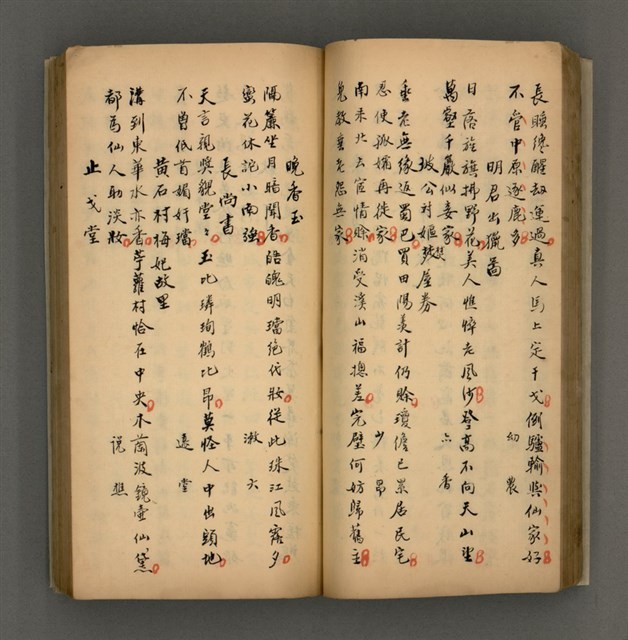 長睡纔醒劫運過真人馬上定干戈倒驢輸與仙家好
不管中原逐鹿多　幼農
明君出獵啚
日落旌旗拂野花美人憔悴老風沙登高不向天山望
萬壑千巖似妾家　六香
坡公対嫗契屋券
垂老無緣返蜀巴買田陽羨計仍賒瓊儋已累居民宅
忍使孤孀再徙家　少昂
南來北去宦情賒消受溪山福揔差完璧何妨歸舊主
免教垂老怨無家
晚香玉
隔簾坐月暗聞香皓魄明璫絕代妝從此珠江風露夕
蛮花休詫小南強　漱六
長尚書
天言親奬觀堂〻玉比璘珣鶴比昂莫怪人中出頭地
不曾低首媚奸璫　遠堂
黃石村梅妃故里
溝到東華水亦香苧蘿村恰在中央木蘭波鏡壺仙黛
都為仙人助淡妝　説樵
止戈堂